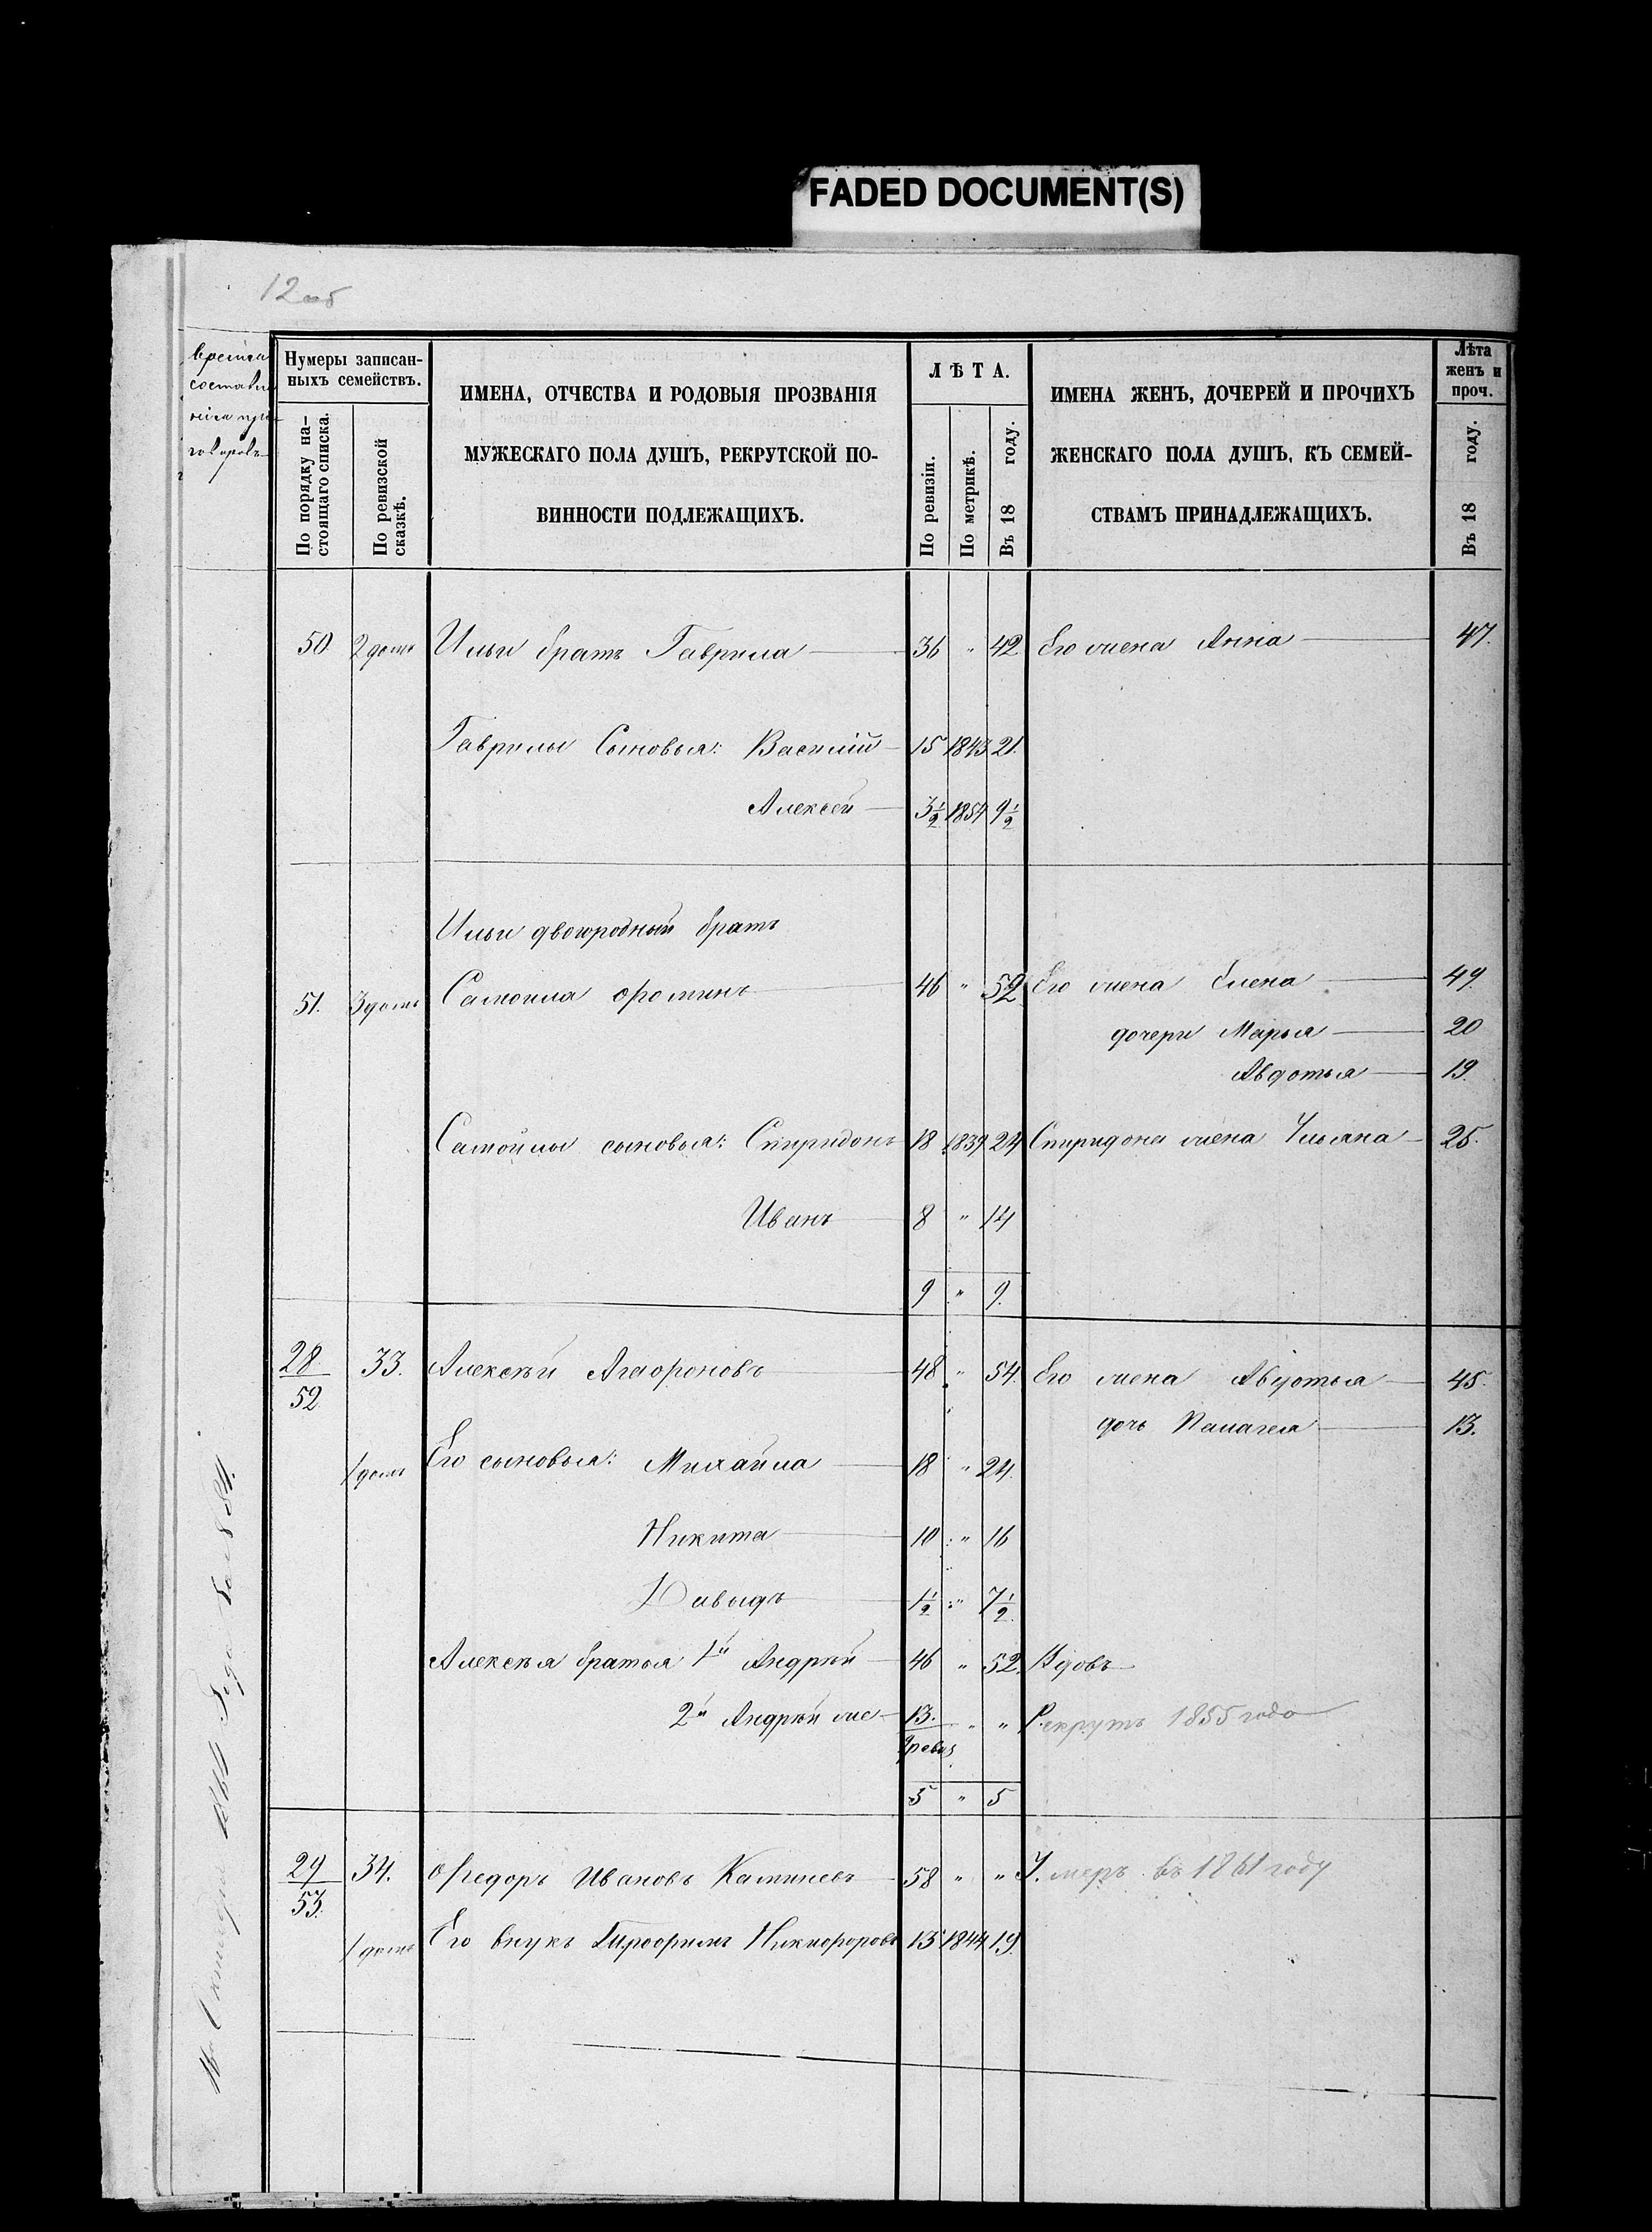 FADED DOCUMENT(S)
12 об
Нумеры записан-
ныхъ семействъ.
По порядку на-
стоящаго списка.
По ревизской
сказкѣ.
ИМЕНА, ОТЧЕСТВА И РОДОВЫЯ ПРОЗВАНІЯ
МУЖЕСКАГО ПОЛА ДУШЪ, РЕКРУТСКОЙ ПО-
ВИННОСТИ ПОДЛЕЖАЩИХЪ.
ЛѢТА.
По ревизіи.
По метрикѣ.
Въ 18 году.
ИМЕНА ЖЕНЪ, ДОЧЕРЕЙ И ПРОЧИХЪ
ЖЕНСКАГО ПОЛА ДУШЪ, КЪ СЕМЕЙ-
СТВАМЪ ПРИНАДЛЕЖАЩИХЪ.
Лѣта
женъ и
проч.
Въ 18 году.
50 2 домъ Ильи братъ Гаврила 36 " 42 Его жена Анна 47.
Гаврилы Сыновья: Василій 15 1843 21.
Алексей 3½ 1854 9½
Ильи двоюродный братъ
51. 3 домъ Самоила 46 " 52 Его жена Елена 49
дочери Марья 20
Авдотья 19.
Самойлы сыновья: Спиридонъ 18 1839 24 Спиридона жена Ульяна 25.
Иванъ 8 " 14
9 " 9.
28/52 33. Алексѣй Агафоновъ 48 " 54. Его жена Авдотья 45.
дочь Палагея 13.
1 домъ Его сыновья: Михайла 18 " 24.
Никита 10 " 16
Давыдъ 1½ " 7½
Алексѣя братья 1й Андрѣй 46 " 52. Вдовъ
2й Андрѣй же 13. " " Рекрутъ 1855 года
5 " 5
29/53. 34. Ѳедоръ Ивановъ 58 " " Умеръ въ 1861 году
1 домъ Его внукъ Никифоровъ 13 1844 19.